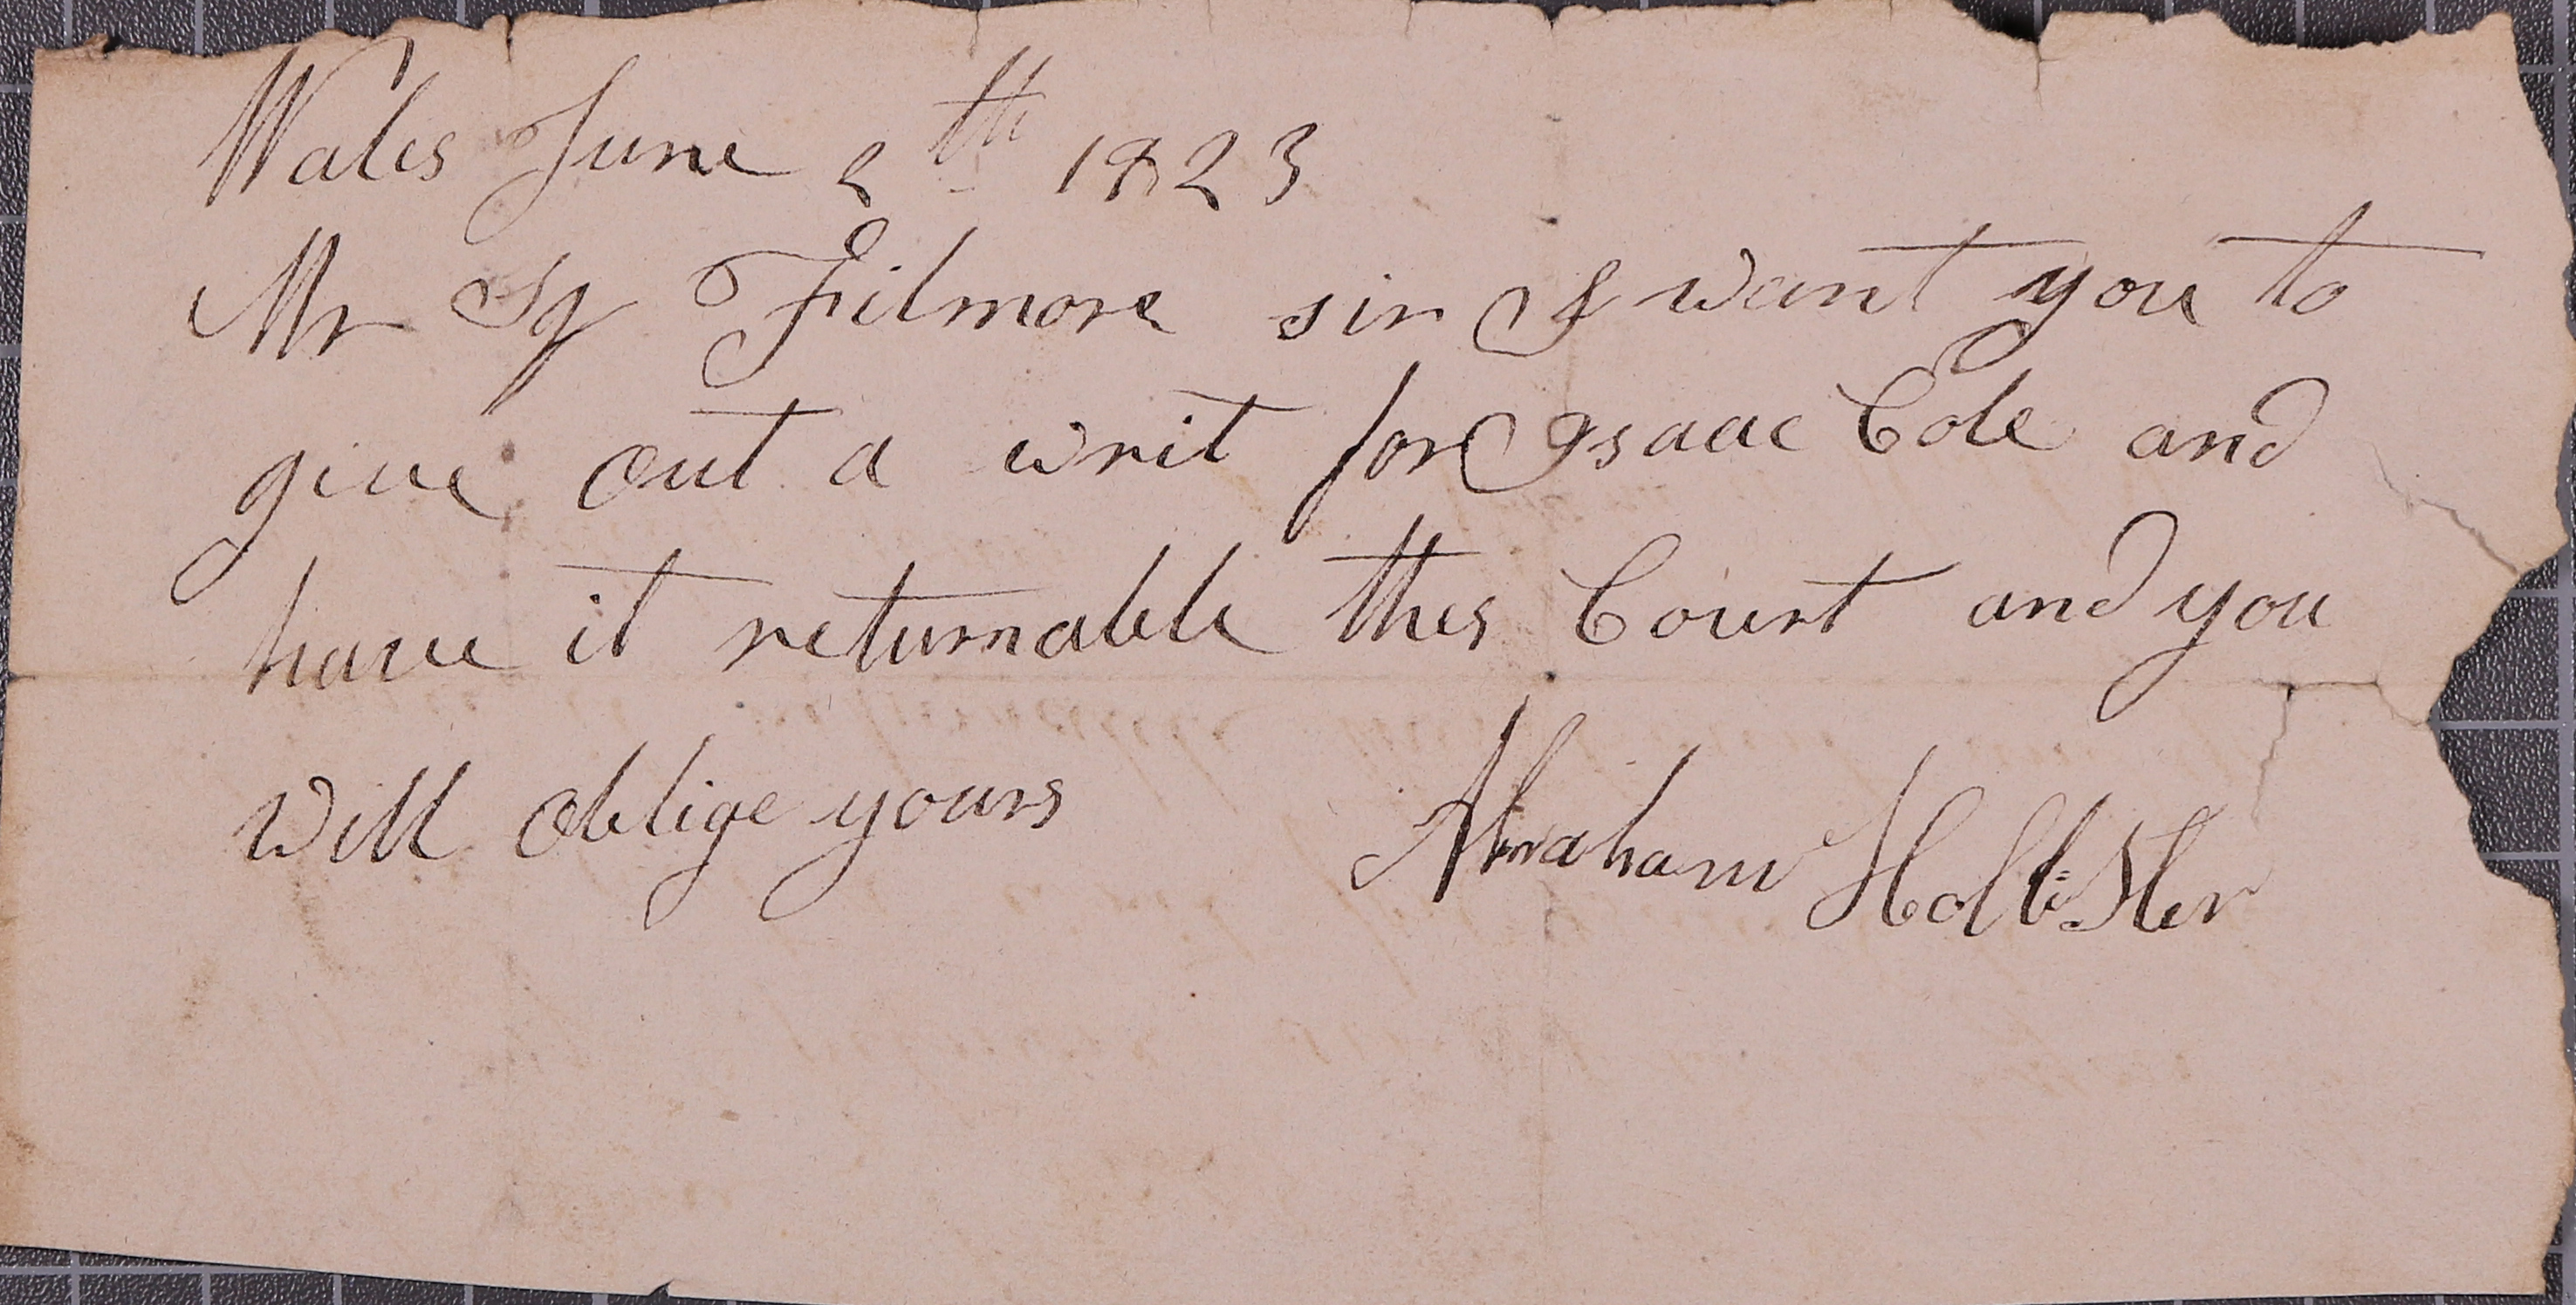 Wales June 2th 1823
Mr Sq Filmore sir I want you to
give out a writ for Isaac Cole and
have it returnable this Court and you
will oblige yours Abraham Hollister